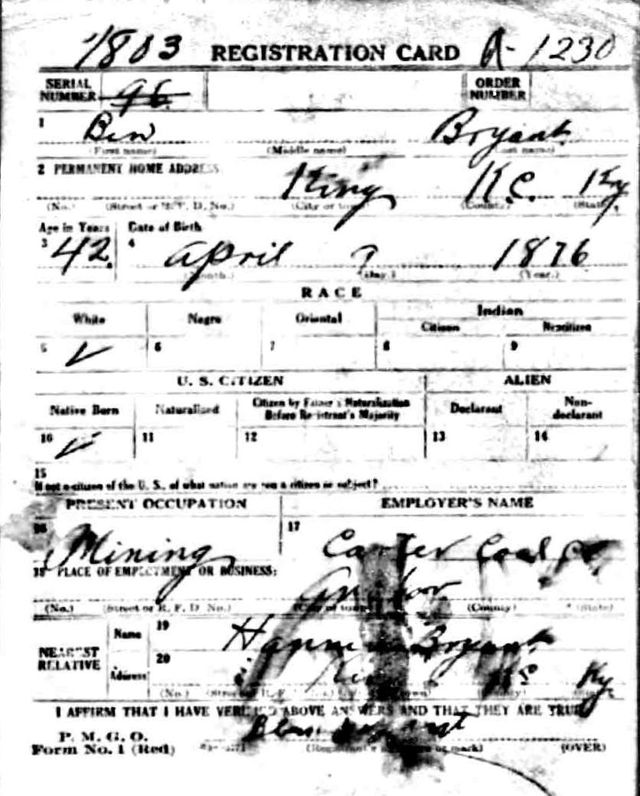 1803 REGISTRATION CARD A-1230
SERIAL NUMBER 96 ORDER NUMBER
1 Ben Bryant
(First name) (Middle name) (Last name)
2 PERMANENT HOME ADDRESS
King K.C. Ky
(No.) (Street or R. F. D. No.) (City or town) (County) (State)
Age in Years Date of Birth
3 42 4 April ? 1876
(Month.) (Day.) (Year.)
RACE
White Negro Oriental Indian
Citizen Noncitizen
5 ✓ 6 7 8 9
U. S. CITIZEN ALIEN
Native Born Naturalized Citizen by Father's Naturalization Before Registrant's Majority Declarant Non-declarant
10 ✓ 11 12 13 14
15
If not a citizen of the U. S., of what nation are you a citizen or subject?
PRESENT OCCUPATION EMPLOYER'S NAME
16 Mining 17 Carter Coal Co.
18 PLACE OF EMPLOYMENT OR BUSINESS:
(No.) (Street or R. F. D. No.) (City or town) (County) (State)
NEAREST RELATIVE Name 19 Bryant
Address 20 Ky
(No.) (County) (State)
I AFFIRM THAT I HAVE VERIFIED ABOVE ANSWERS AND THAT THEY ARE TRUE
P. M. G. O.
Form No. 1 (Red) (Registrant's signature or mark) (OVER)